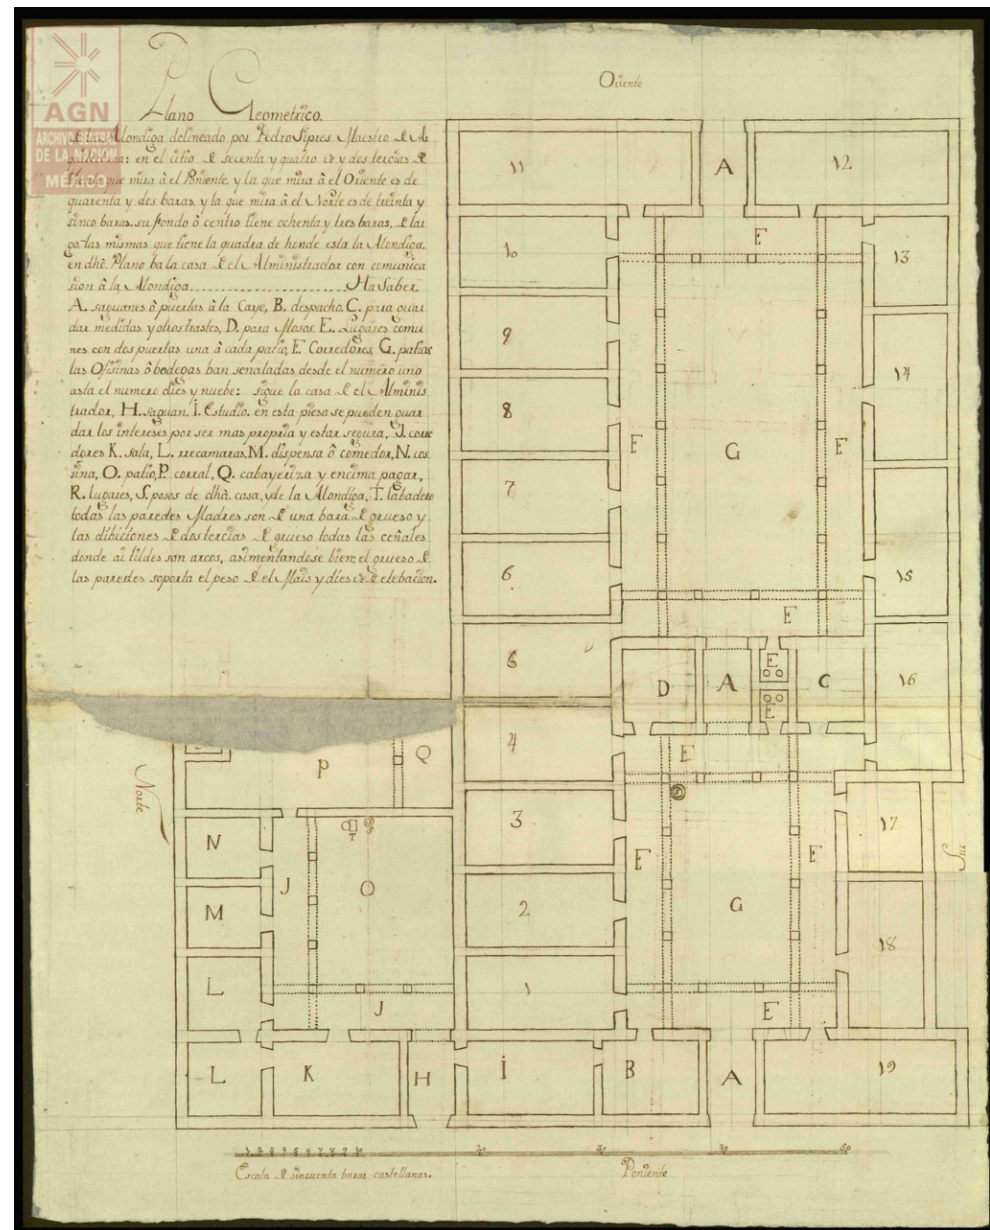 Oriente
Plano Geometrico.
AGN
ARCHIVO GENERAL
DE LA NACION
MÉXICO
de la Alondiga delineado por Pedro Sipres Maestro de
en el citio de secenta y quatro vs y dos tercias de
que mira â el Poniente. y la que mira â el Oriente es de
quarenta y dos baras, y la que mira â el Norte es de treinta y
sinco baras. su fondo ô centro tiene ochenta y tres baras, de lar
go las mismas que tiene la quadra de honde esta la Alondiga.
en dho. Plano ba la casa de el Administrador con comunica
sion â la Alondiga. Ha Saber
A. saguanes ô puertas â la Caye, B. despacho. C. para guar
dar medidas y otros trastes, D. para Mosos. E. Lugares comu
nes con dos puertas una â cada patio, E. Corredores, G. patios
las Ofisinas ô bodegas ban señaladas desde el numero uno
asta el numero dies y nuebe: sigue la casa de el Adminis
trador, H. saguan, I. Estudio. en esta piesa se pueden guar
dar los intereses por ser mas propria y estar segura, J. corre
dores K. sala, L. rrecamaras, M. dispensa ô comedor, N. cos
sina, O. patio, P. corral, Q. cabayeriza y encima pagar,
R. lugares, S. posos de dha. casa, y de la Alondiga, T. labadero
todas las paredes Madres son de una bara de grueso y
las dibiciones de dos tercias de grueso todas las ceñales
donde ai tildes son arcos, asimentandose bien; el grueso de
las paredes soporta el peso de el Mais y dies vs de elebacion.
11 A 12
10 E 13
9
8 E G E 14
7
6 E 15
5 D A E C 16
E
4 E
P Q
Norte
3 E E 17
Sur
N T
J O
M 2 G 18
L J 1 E
L K H I B A 19
1 2 3 4 5 6 7 8 9 10 20 30 40 50
Escala de sincuenta baras castellanas. Poniente